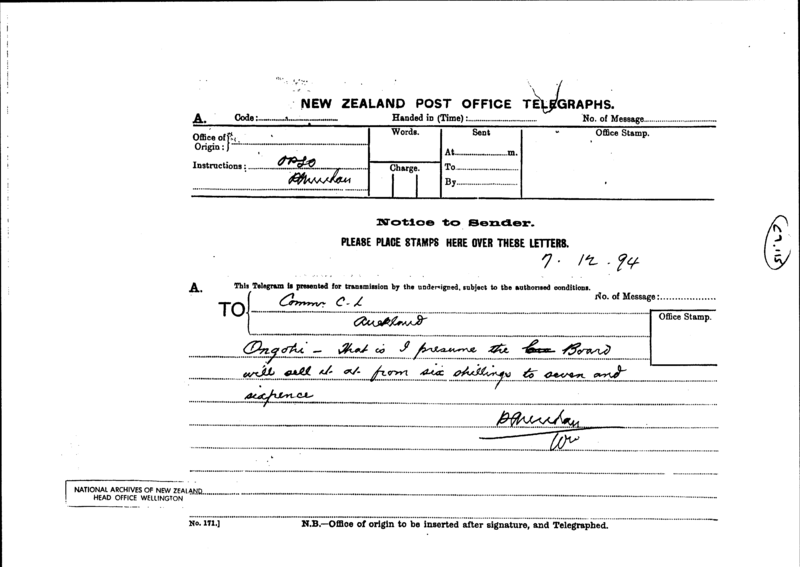 NEW ZEALAND POST OFFICE TELEGRAPHS.
A. Code: Handed in (Time): No. of Message
Office of Origin: Words. Sent Office Stamp.
At m.
Instructions: Charge. To
By
Notice to Sender.
PLEASE PLACE STAMPS HERE OVER THESE LETTERS.
7. 12. 94
A. This Telegram is presented for transmission by the undersigned, subject to the authorised conditions.
No. of Message:
TO Commr. C. L
Auckland
Office Stamp.
Ongohi – that is I presume the Board
will sell it at from six shillings to seven and
sixpence
NATIONAL ARCHIVES OF NEW ZEALAND
HEAD OFFICE WELLINGTON
No. 171.] N.B.—Office of origin to be inserted after signature, and Telegraphed.